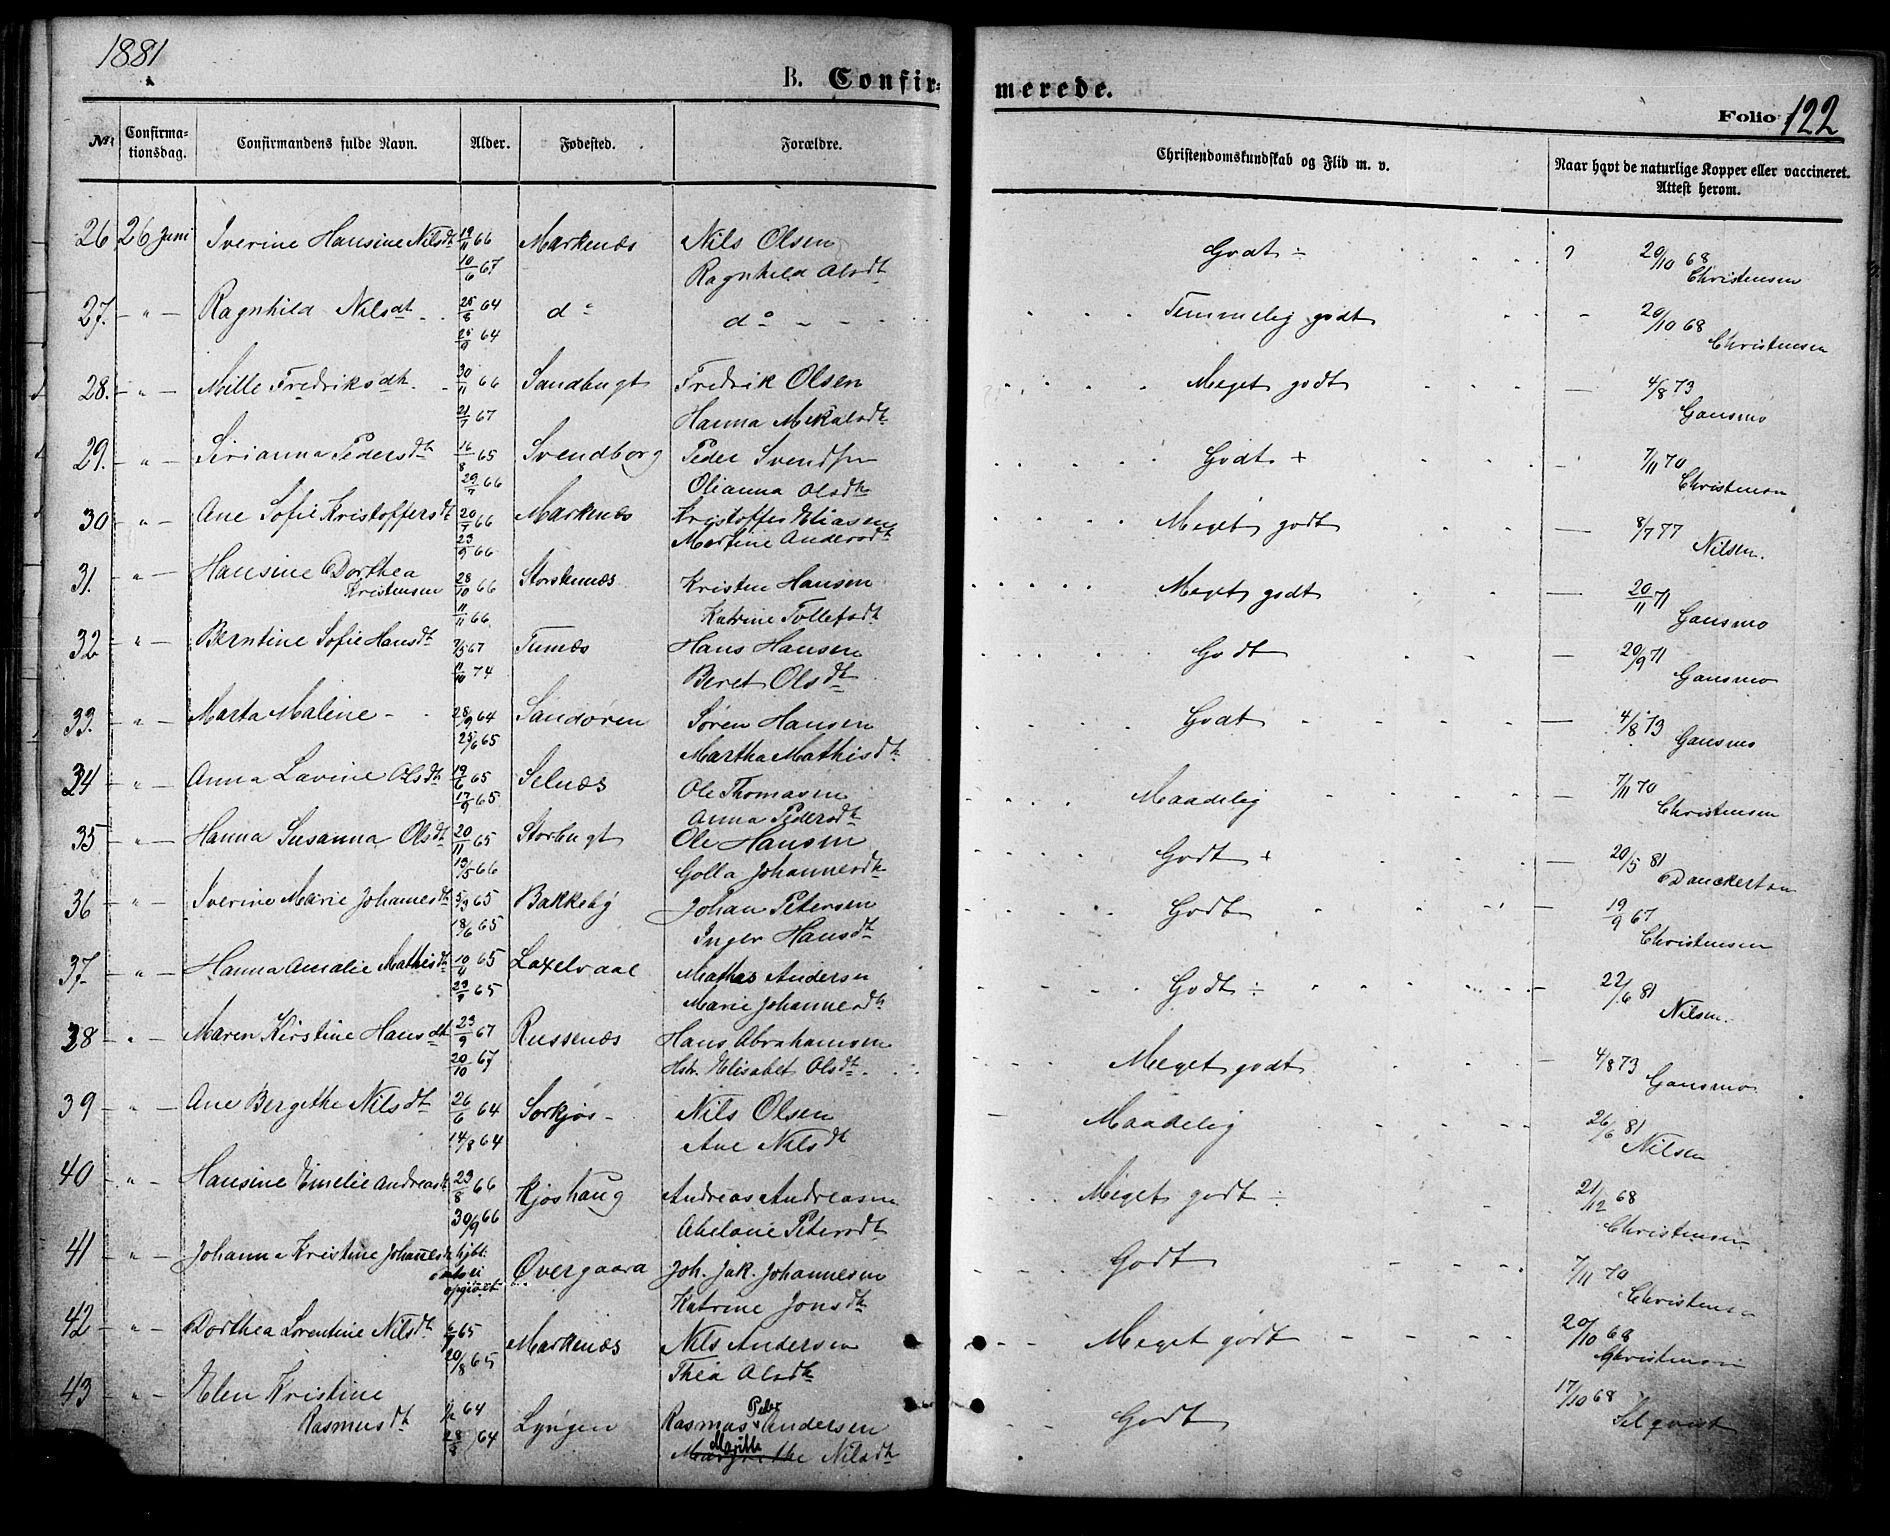 1881
B. Confir=
merede.
Folio 122
No. Confirma=tionsdag. Confirmandens fulde Navn. Alder. Fødested. Forældre. Christendomskundskab og Flid m. v. Naar havt de naturlige Kopper eller vaccineret. Attest herom.
26 26 Juni Iverine Hansine Nilsdt 19/11 66 Markenæs Nils Olsen Godt ÷ 20/10 68
10/6 67 Ragnhild Olsdt Christensen
27. " Ragnhild Nilsdt 25/8 64 do do Temmelig godt 20/10 68
25/9 64 Christensen
28. " Mille Fredriksdt. 30/11 66 Sandbugt Fredrik Olsen Meget godt 4/8 73
21/7 67 Hanna Mikalsdt Gausmo
29. " Sirianna Pedersdt 16/8 65 Svendborg Peder Svendsen Godt + 7/11 70
29/7 66 Olianna Olsdt Christensen
30 " Ane Sofie Kristoffersdt 66 Markenæs Kristoffer Eliasen Meget godt 8/7 77
23/9 66 Martine Andersdt Nilsen.
31. " Hansine Dorthea Kristensen 28/10 66 Storstenæs Kristen Hansen Meget godt 20/11 71
11/11 66 Katrine Tollefsdt Gausmo
32 " Berntine Sofie Hansdt 7/5 67 Tunæs Hans Hansen Godt 20/9 71
11/10 74 Beret Olsdt Gausmo
33. " Marta Maline - 28/9 64 Sandøren Søren Hansen Godt 4/8 73
25/6 65 Martha Mathisdt Gausmo
34 " Anna Lavine Olsdt 19/6 65 Selnæs Ole Thomasen Maadelig 7/11 70
17/9 65 Anna Pedersdt Christensen
35 " Hanna Susanna Olsdt 20/11 65 Storbugt Ole Hansen Godt + 20/5 81
13/5 66 Golla Johannesdt Danckertsen
36 " Iverine Marie Johannesdt 5/3 65 Bakkeby Johan Petersen Godt 19/9 67
18/6 65 Inger Hansdt Christensen
37 " Hanna Amalie Mathisdt 65 Laxelvdal Mathas Andersen Godt ÷ 22/6 81
65 Marie Johannesdt Nilsen.
38 " Maren Kirstine Hansdt 23/9 67 Russenæs Hans Abrahamsen Meget godt 4/8 73
20/10 67 Hstr. Elisabet Olsdt. Gausmo
39 " Ane Bergithe Nilsdt 26/6 64 Sorkjos - Nils Olsen Maadelig 26/6 81
14/8 64 Ane Nilsdt Nilsen
40 " Hansine Emelie Andreasdt 23/8 66 Kjoshaug Andreas Andreasen Meget godt ÷ 21/12 68
30/9 66 Abelone Petersdt Christensen
41 " Johanna Kristine Johannesdt hjbt. dato ei opgivet Overgaara Joh. Jak. Johannesen Godt 7/11 70
Katrine Jonsdt Christensen
42 " Dorthea Lorentine Nilsdt 65 Markenæs Nils Andersen Meget godt 20/10 68
20/8 65 Thea Olsdt Christensen
43 " Elen Kristine Rasmusdt 64 Lyngen Rasmus Peder Andersen Godt 17/10 68
64 Marith Margrethe Nilsdt Selqvist